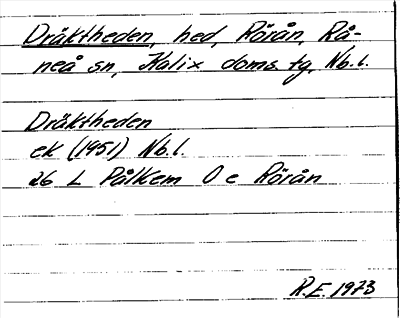 Dräktheden, hed, Rörån, Rå-
neå sn, Kalix doms. tg, Nb. l.
Dräktheden
ek (1951) Nb. l.
26 L Pålkem O e Rörån
R.E. 1973